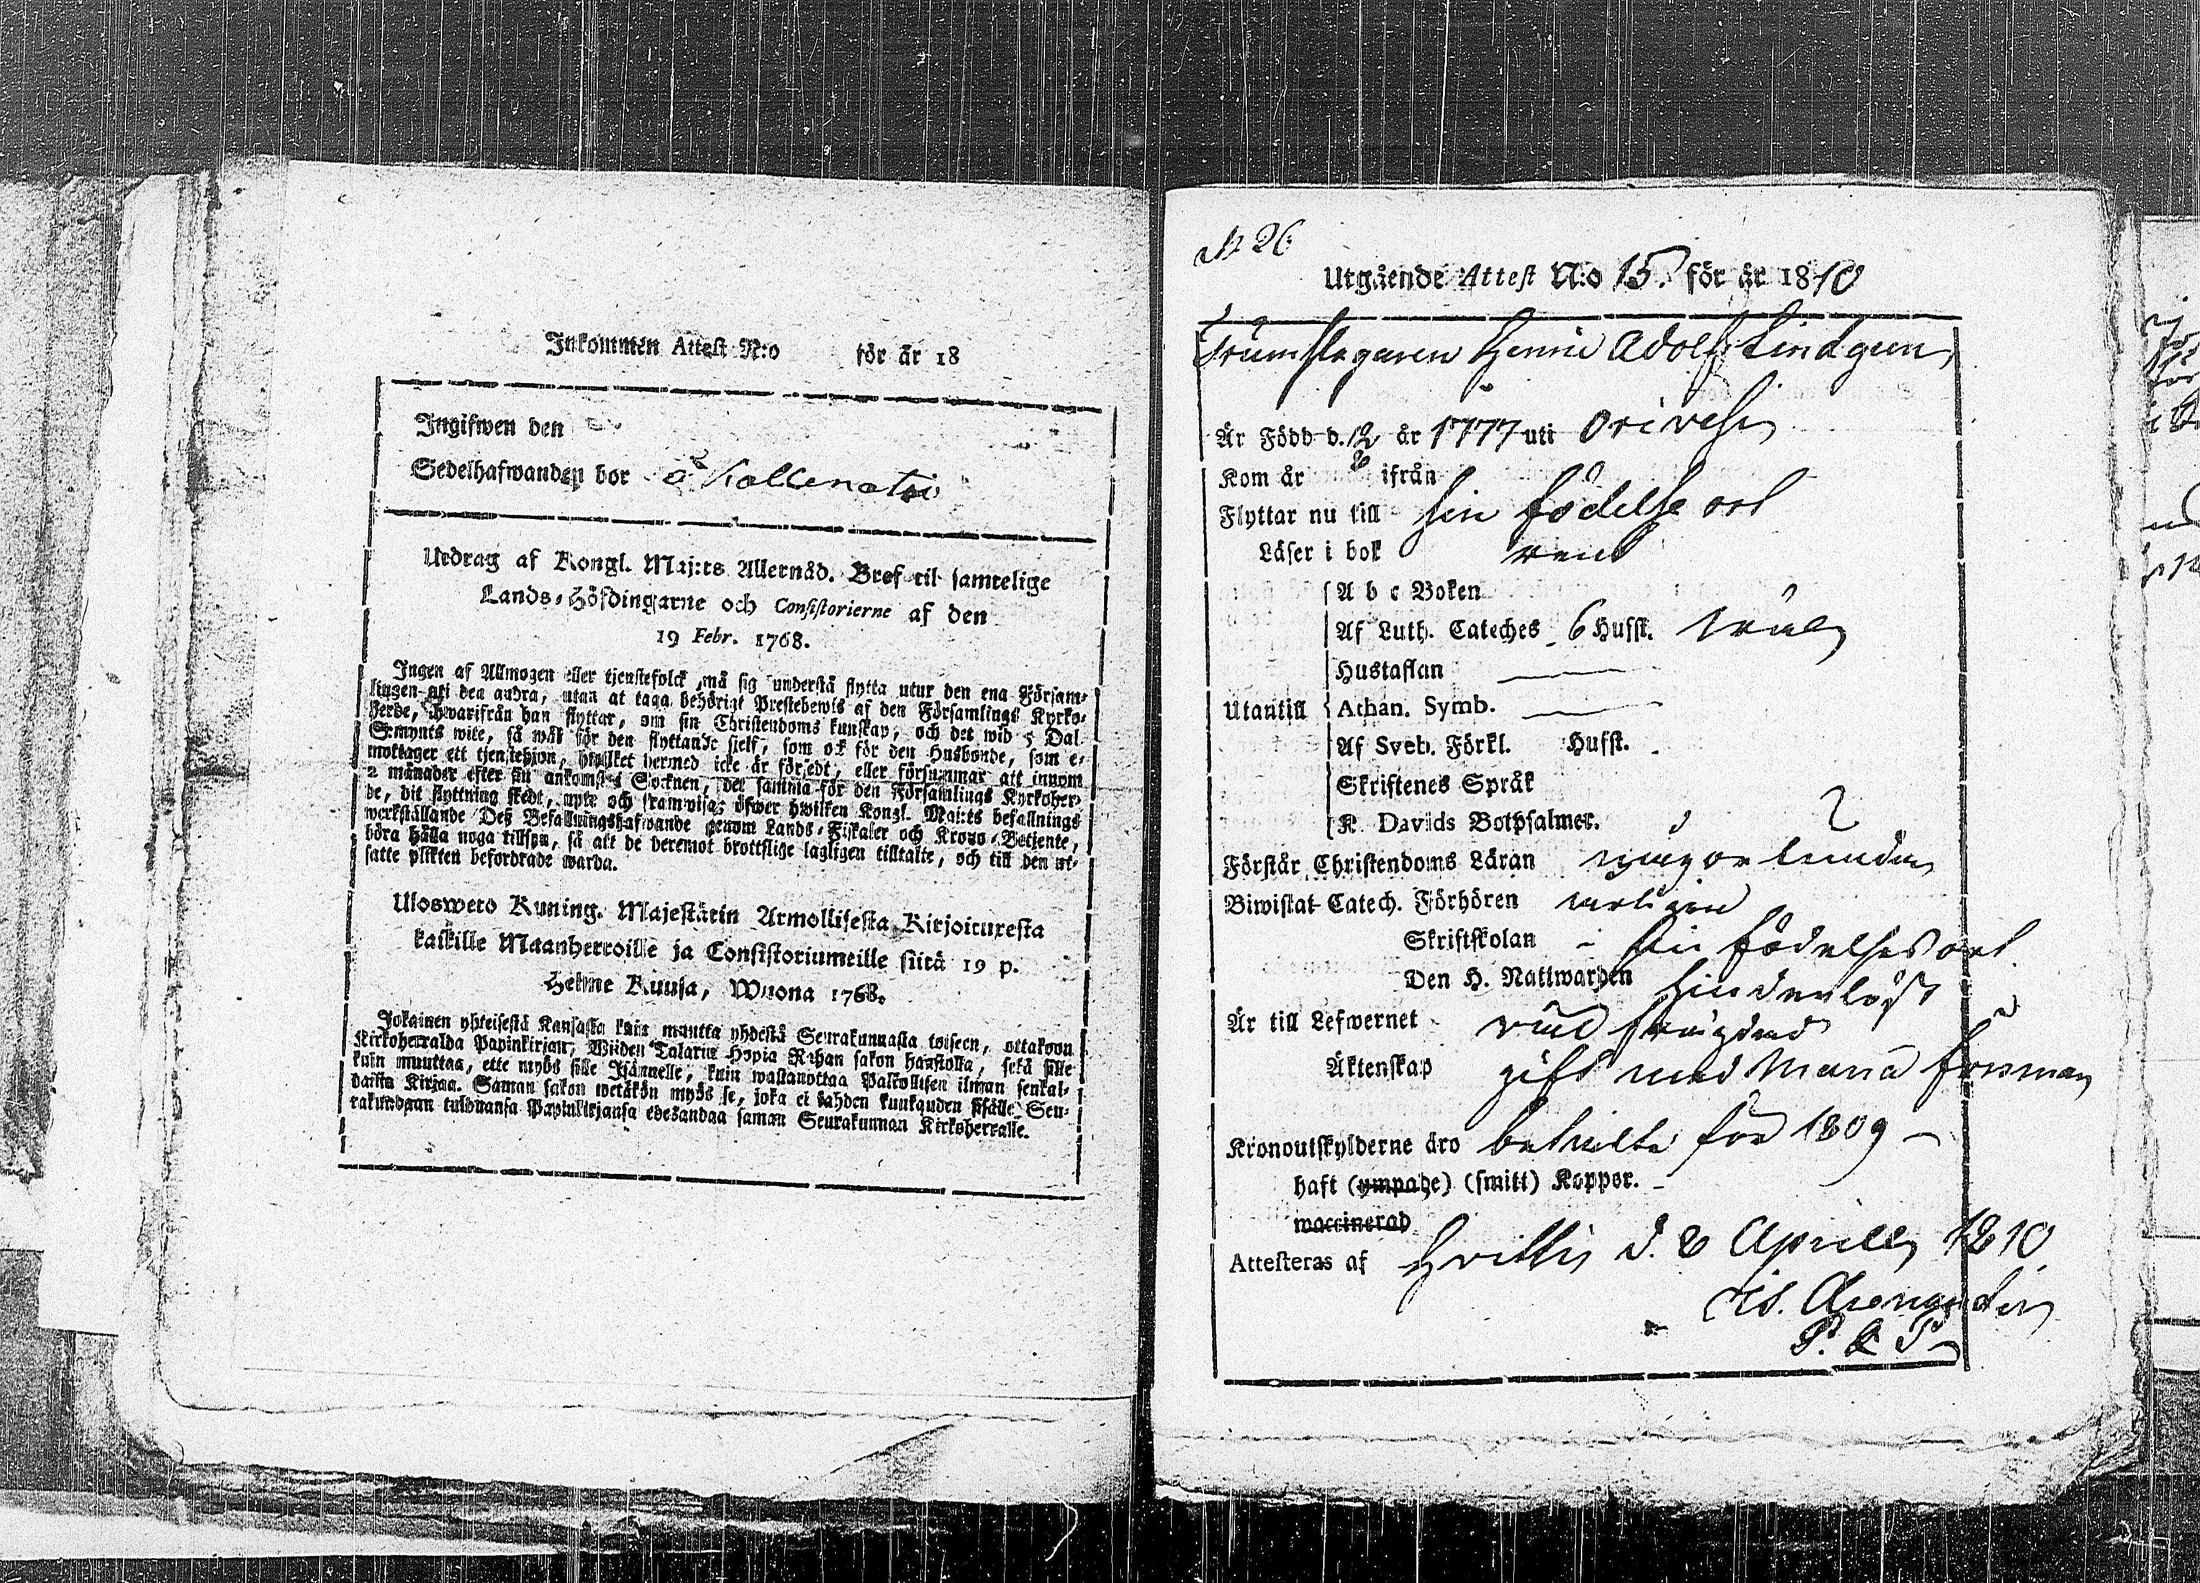 Inkommen Attest N:o för år 18
Ingifwen den
Sedelhafwanden bor å
Utdrag af Kongl. Maj:ts Allernåd. Bref til samtelige
Lands-Höfdingarne och Consistorierne af den
19 Febr. 1768.
Ingen af Allmogen eller tjenstefolck må sig understå flytta utur den ena Försam-
lingen uti den andra, utan at taga behörigt Prestebewis af den Församlings Kyrko-
herde, hwarifrån han flyttar, om sin Christendoms kunskap, och det wid 5 Dal.
S:rmynts wite, så wäl för den flyttande sjelf, som ock för den Husbonde, som e-
mottager ett tjenstehjon, hwilket hermed icke är försedt, eller försummar att innom
2 månader efter sin ankomst i Socknen, det samma för den Församlings Kyrkoher-
de, dit flyttning skedt, upte och framwisa; öfwer hwilken Kongl. Maj:ts befallnings
werkställande Deß Befallningshafwande genom Lands-Fiskaler och Krono-Betjente,
böra hålla noga tillsyn, så att de deremot brottslige lagligen tilltalte, och till den ut-
satte plikten befordrade warda.
Uloswето Kuning. Majestätin Armollisesta Kirjoituxesta
kaikille Maanherroille ja Consistoriumeille siitä 19 p.
Helme Kuusa, Wuona 1768.
Jokainen yhteisestä Kansasta kuin muutta yhdestä Seurakunnasta toiseen, ottakoon
Kirkoherralda Papinkirjan, Wiiden Talarin Hopia Rahan sakon haastolla, sekä sille
kuin muuttaa, ette myös sille Isännelle, kuin wastanottaa Palkollisen ilman senkal-
daista Kirjaa. Saman sakon wetäkön myös se, joka ei kahden kuukauden sisälle Seu-
rakundaan tulduansa Papinkirjansa edesandaa saman Seurakunnan Kirkoherralle.
N 26
Utgående Attest N:o 15. för år 1810
Trumslagaren Henric Adolf Lindgren
Är Född d. 12 år 1777 uti Orivesi
Kom år ifrån
Flyttar nu till sin födelse ort
Läser i bok rent
A b c Boken
Af Luth. Cateches 6 Hufst.
Hustaflan
Utantill Athan. Symb.
Af Sveb. Förkl. Hufst.
Skriftenes Språk
K. Davids Botpsalmer.
Förstår Christendoms Läran någorlunda
Biwistat Catech. Förhören
Skriftskolan - sin födelseort
Den H. Nattwarden hinderlöst
Är till Lefwernet väl frägdad
Äktenskap gift med Maria Forsman
Kronoutskylderne äro betalte för 1809
haft (ympade) (smitt) Koppor.
waccinerad
Attesteras af Hvittis d. 8 Aprill 1810